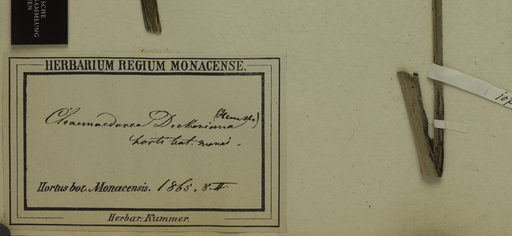 SCHE
SAMMLUNG
EN
HERBARIUM REGIUM MONACENSE.
Chamaedorea Deckeriana (Hemsl.)
horti bot. monac.
Hortus bot. Monacensis. 1865. 8.II
Herbar. Kummer.